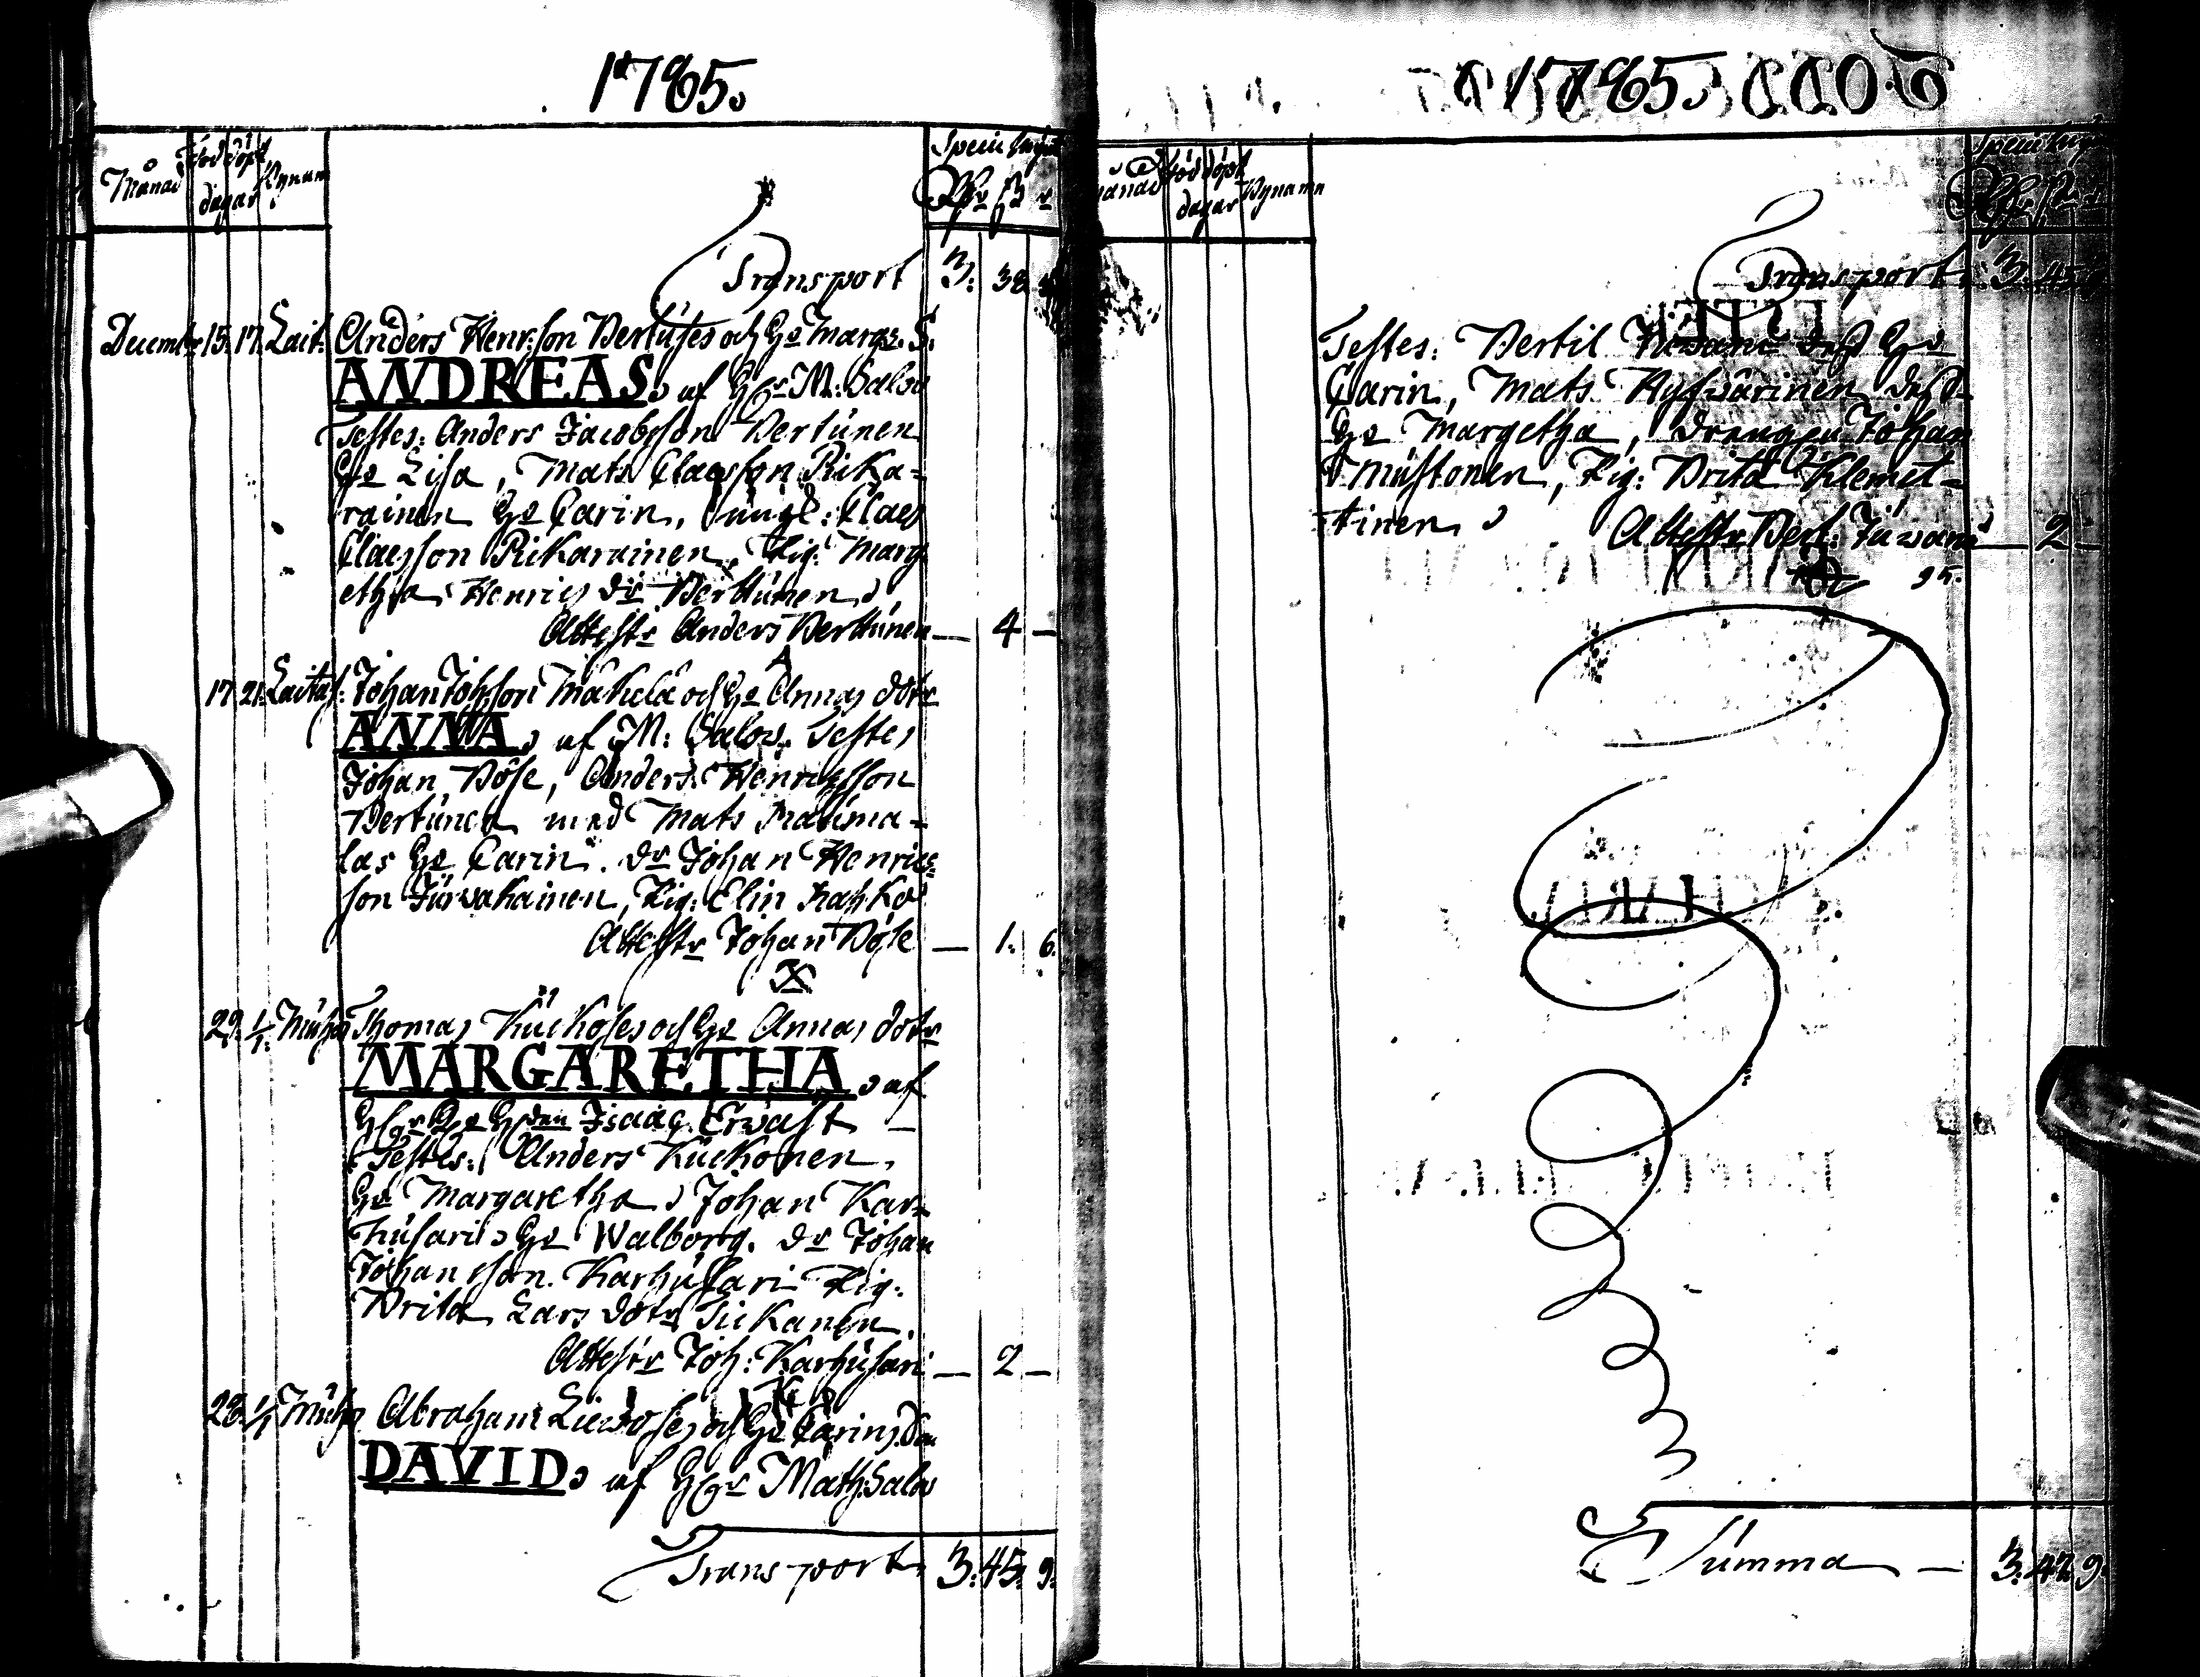 1785.
Månad
född döpt
dagar
Bynamn
Speciesdlr
Rdr ß r
Transport 3: 38
Decembr 15. 17. Lait: Anders Henr:son Pertuses och Ho Margr: S.
ANDREAS, af HGr M: Salov
Testes: Anders Jacobsson Pertunen
Ho Lisa, Mats Claesson Pika-
rainen Ho Carin, ungk: Claes
Claesson Pikarainen, Pig: Marg
etha Henrics dr Perttunen,
Attestr Anders Perttunen — 4 —
17 21. Laitas: Johan Johsson Makula och Ho Annas dotr
ANNA, af M: Salov. Testes
Johan Böse, Anders Henricsson
Pertunen med Mats
las Ho Carin. dr Johan Henrics
son Pig: Elin
Attestr Johan Böse — 1. 6.
29. 1/1. Thomas Kuckoses och Ho Annas dotr
MARGARETHA, af
HGr Isaac Erwast —
Testes: Anders Kuckonen,
Ho Margaretha, Johan Kar-
husari, Ho Walborg. dr Johan
Johansson Karhusari Pig:
Brita Lars dotr Tickanen.
Attestr Joh: Karhusari — 2 —
28. 1/1 Abraham och Ho Carins son
DAVID, af HGr Math: Salov
Transport 3: 45. 9.
1785.
Månad
född döpt
dagar
Bynamn
Transport 3. 45
Testes: Bertil dess Ho
Carin, Mats Hyfvärinen dess
Ho Margetha, Drengen Johan
Mustonen, Pig: Brita Klemet-
tinen,
Attestr Bert: — 2 —
Summa — 3: 47 9.